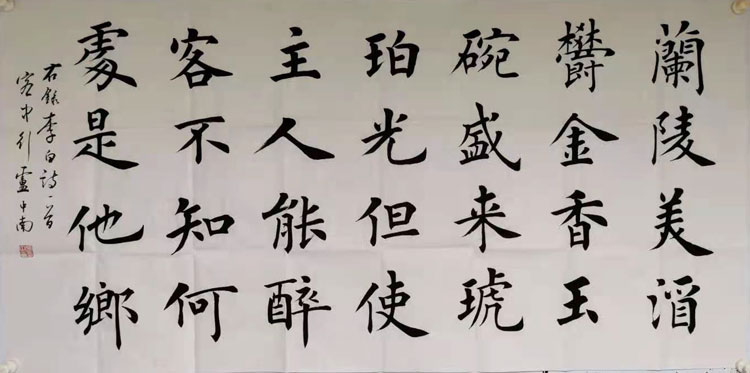 蘭陵美酒
欎金香玉
碗盛来琥
珀光但使
主人能醉
客不知何
處是他鄉
右錄李白詩一首
客中行 盧中南